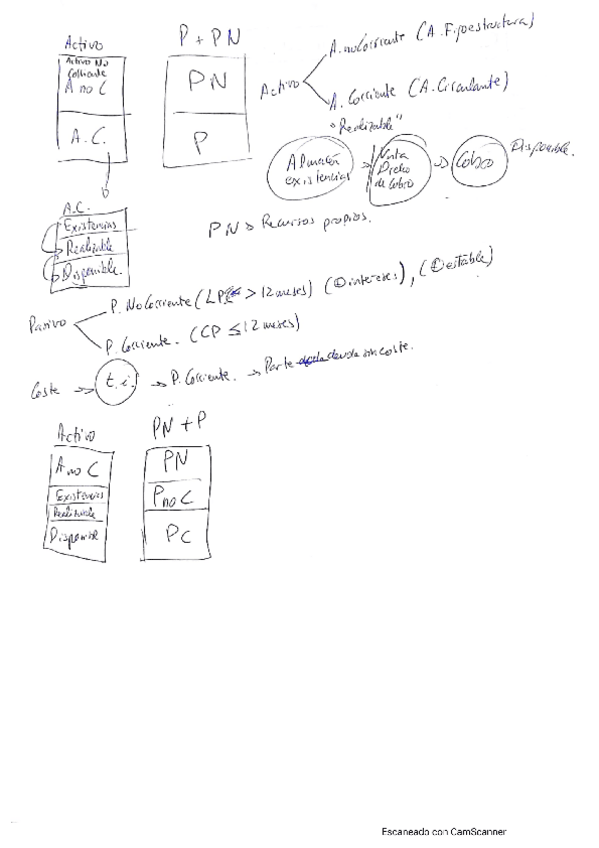 Activo
P + PN
Activo No
Corriente
A no C
A.C.
PN
P
Activo
A. no Corriente (A. Fijo estructura)
A. Corriente (A. Circulante)
"Realizable"
Almacén
existencias
Venta
Dcho
de cobro
Cobro
Disponible.
A.C.
Existencias
Realizable
Disponible.
PN → Recursos propios.
Pasivo
P. No Corriente (LP > 12 meses) (⊕ intereses), (⊕ estable)
P. Corriente. (CP ≤ 12 meses)
Coste → t.i. → P. Corriente. → Parte deuda sin coste.
Activo
PN + P
A no C
Existencias
Realizable
Disponible
PN
P no C
PC
Escaneado con CamScanner